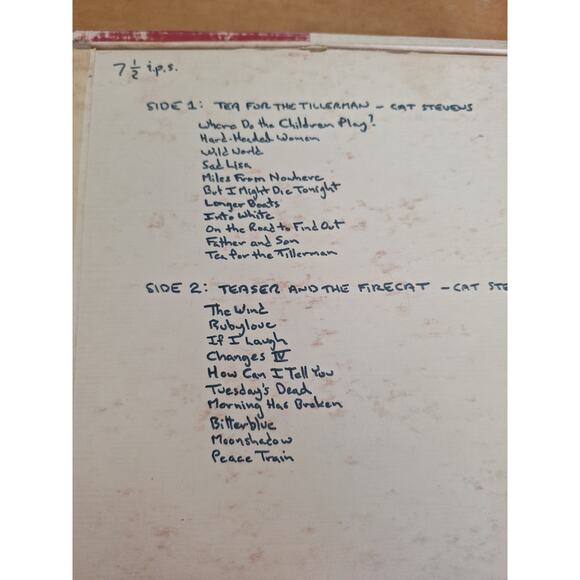 7 1/2 i.p.s.
SIDE 1: TEA FOR THE TILLERMAN - CAT STEVENS
Where Do the Children Play?
Hard-Headed Woman
Wild World
Sad Lisa
Miles From Nowhere
But I Might Die Tonight
Longer Boats
Into White
On the Road to Find Out
Father and Son
Tea for the Tillerman
SIDE 2: TEASER AND THE FIRECAT - CAT STE
The Wind
Rubylove
If I Laugh
Changes IV
How Can I Tell You
Tuesday's Dead
Morning Has Broken
Bitterblue
Moonshadow
Peace Train